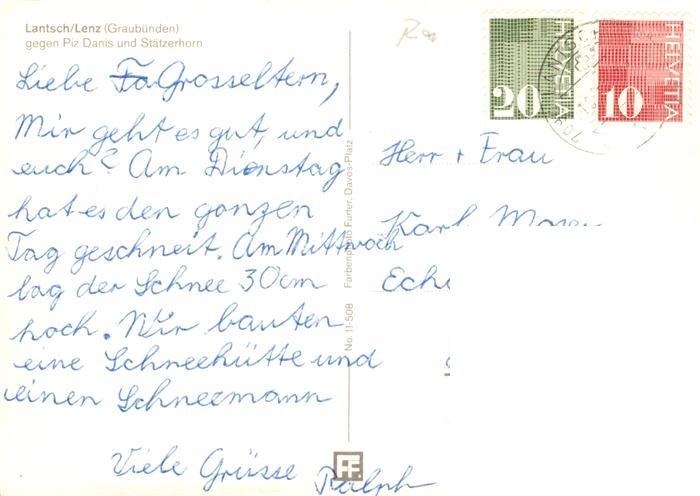 Lantsch/Lenz (Graubünden)
gegen Piz Danis und Stätzerhorn
Liebe Grosseltern,
Mir geht es gut, und
euch? Am Dienstag
hat es den ganzen
Tag geschneit. Am Mittwoch
lag der Schnee 30cm
hoch. Wir bauten
eine Schneehütte und
einen Schneemann
Viele Grüsse Ralph
No. 11-508 Farbenphoto Furter, Davos-Platz
FF
20 HELVETIA
10 HELVETIA
Herr + Frau
Karl